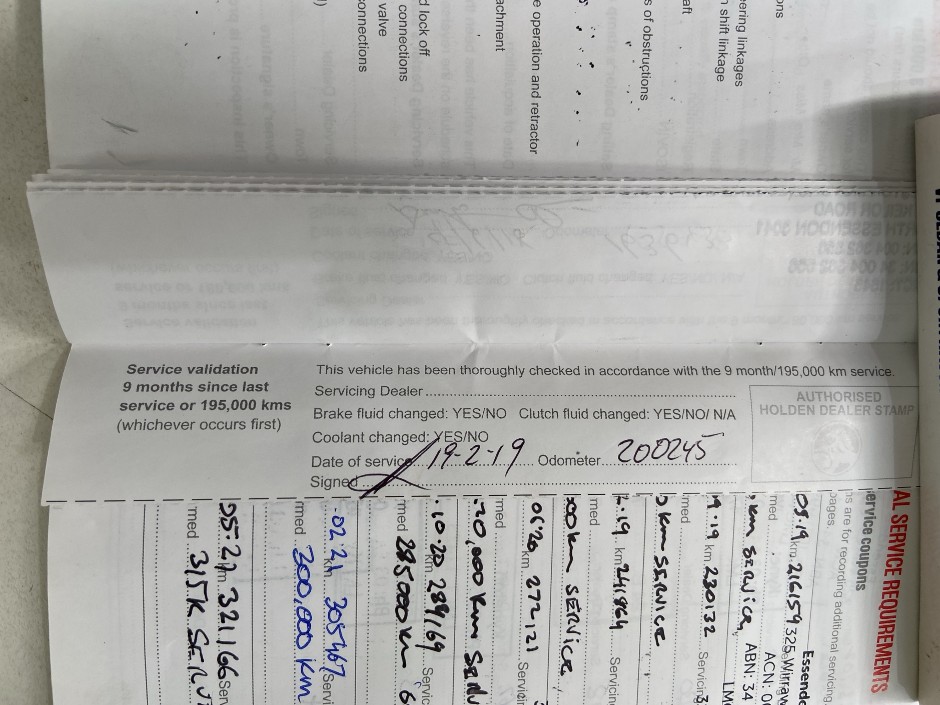 ons
ering linkages
shift linkage
aft
s of obstructions
e operation and retractor
achment
d lock off
connections
valve
connections
Service validation
9 months since last
service or 195,000 kms
(whichever occurs first)
This vehicle has been thoroughly checked in accordance with the 9 month/195,000 km service.
Servicing Dealer
Brake fluid changed: YES/NO Clutch fluid changed: YES/NO/ N/A
Coolant changed: YES/NO
Date of service 19-2-19 Odometer 200245
Signed
AUTHORISED
HOLDEN DEALER STAMP
AL SERVICE REQUIREMENTS
ervice coupons
ns are for recording additional servicing.
pages.
Essend
05.19 km 216159 325 Wirraw
ACN: 0
med km SERVICE, ABN: 34
LM
9.19 km 230132 Servicing
med km SERVICE
2.19 km 241864 Servicin
med 00 km SERVICE
05.20 km 272121 Servicin
med 70,000 km SERV
10.20 km 289169 Servic
med 285000 km
02.21 km 305467 Servi
med 300,000 km
05.21 km 321166 Ser
med 315K SERVI